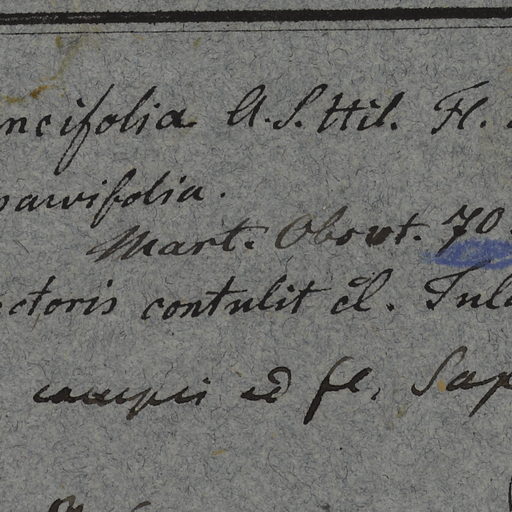 ncifolia A. S. Hil. Fl.
parvifolia.
Mart. Obs 70.
ctoris contulit cl. Tul
campis ad fl. Sap